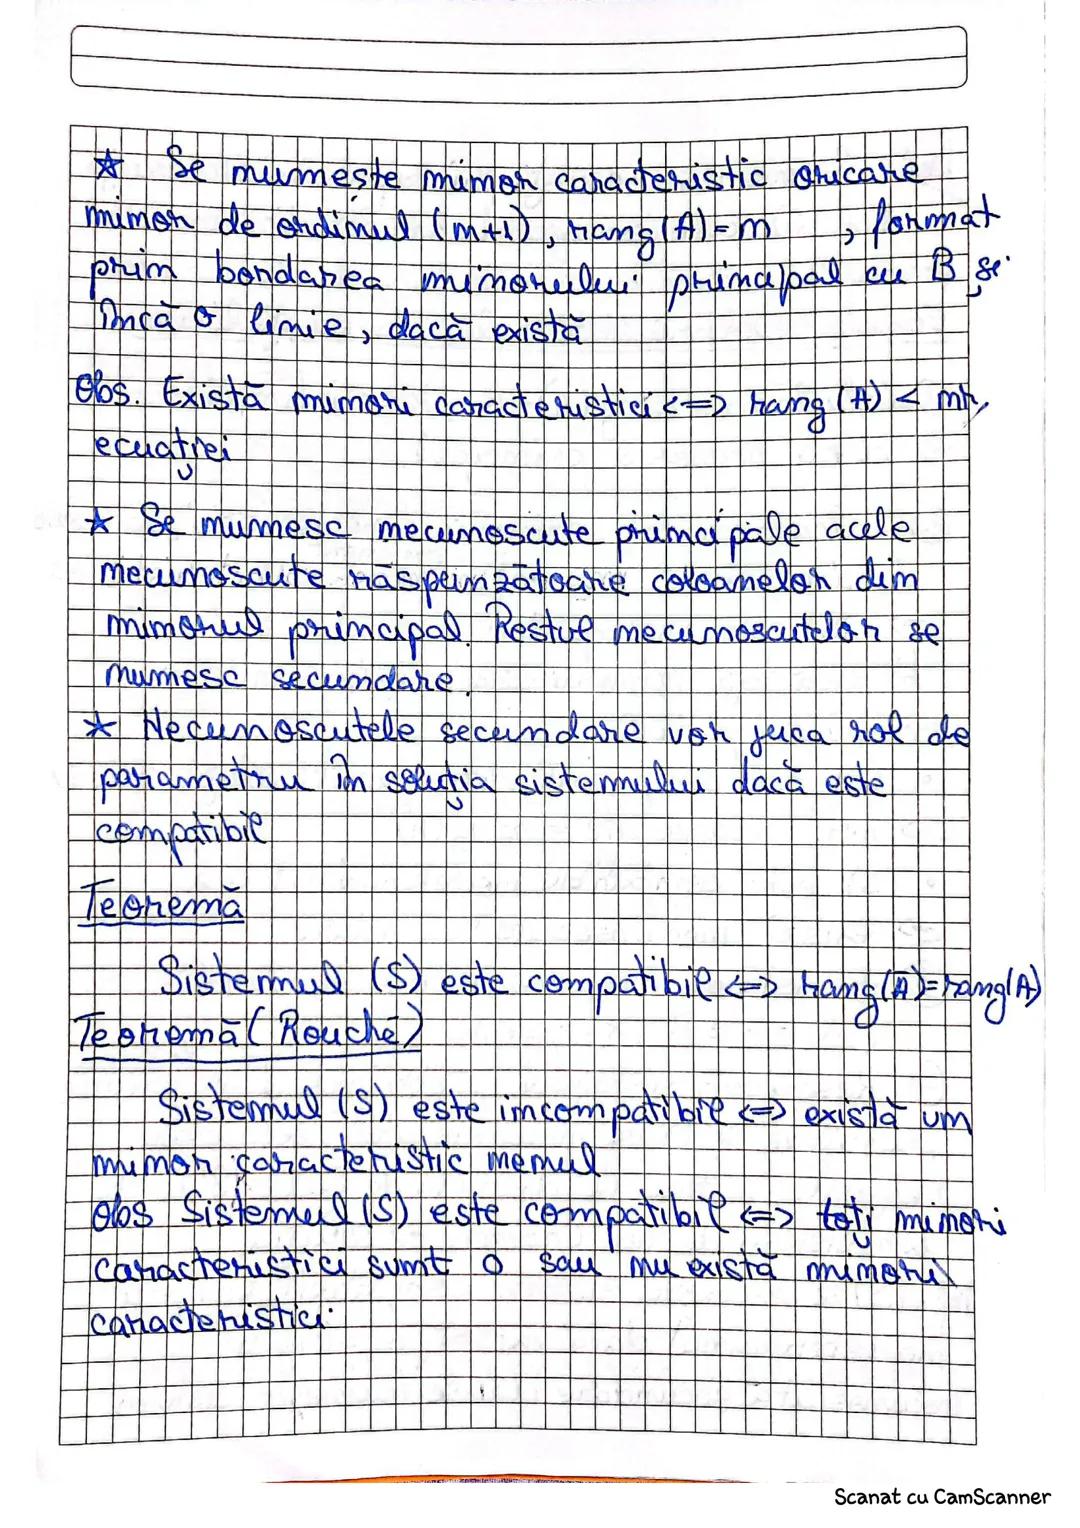 ☆ Se numește minor caracteristic oricare
minor de ordinul (n+1), rang(A)=n , format
prin bordarea minorului principal cu B și
încă o linie, dacă există
Obs. Există minori caracteristici <=> rang(A) < nr.
ecuației
☆ Se numesc necunoscute principale acele
necunoscute răspunzătoare coloanelor din
minorul principal. Restul necunoscutelor se
numesc secundare.
☆ Necunoscutele secundare vor juca rol de
parametru în soluția sistemului dacă este
compatibil
Teoremă
Sistemul (S) este compatibil <=> rang(Ā)=rang(A)
Teoremă (Rouché)
Sistemul (S) este incompatibil <=> există un
minor caracteristic nenul
Obs Sistemul (S) este compatibil <=> toți minorii
caracteristici sunt 0 sau nu există minorii
caracteristici.
Scanat cu CamScanner